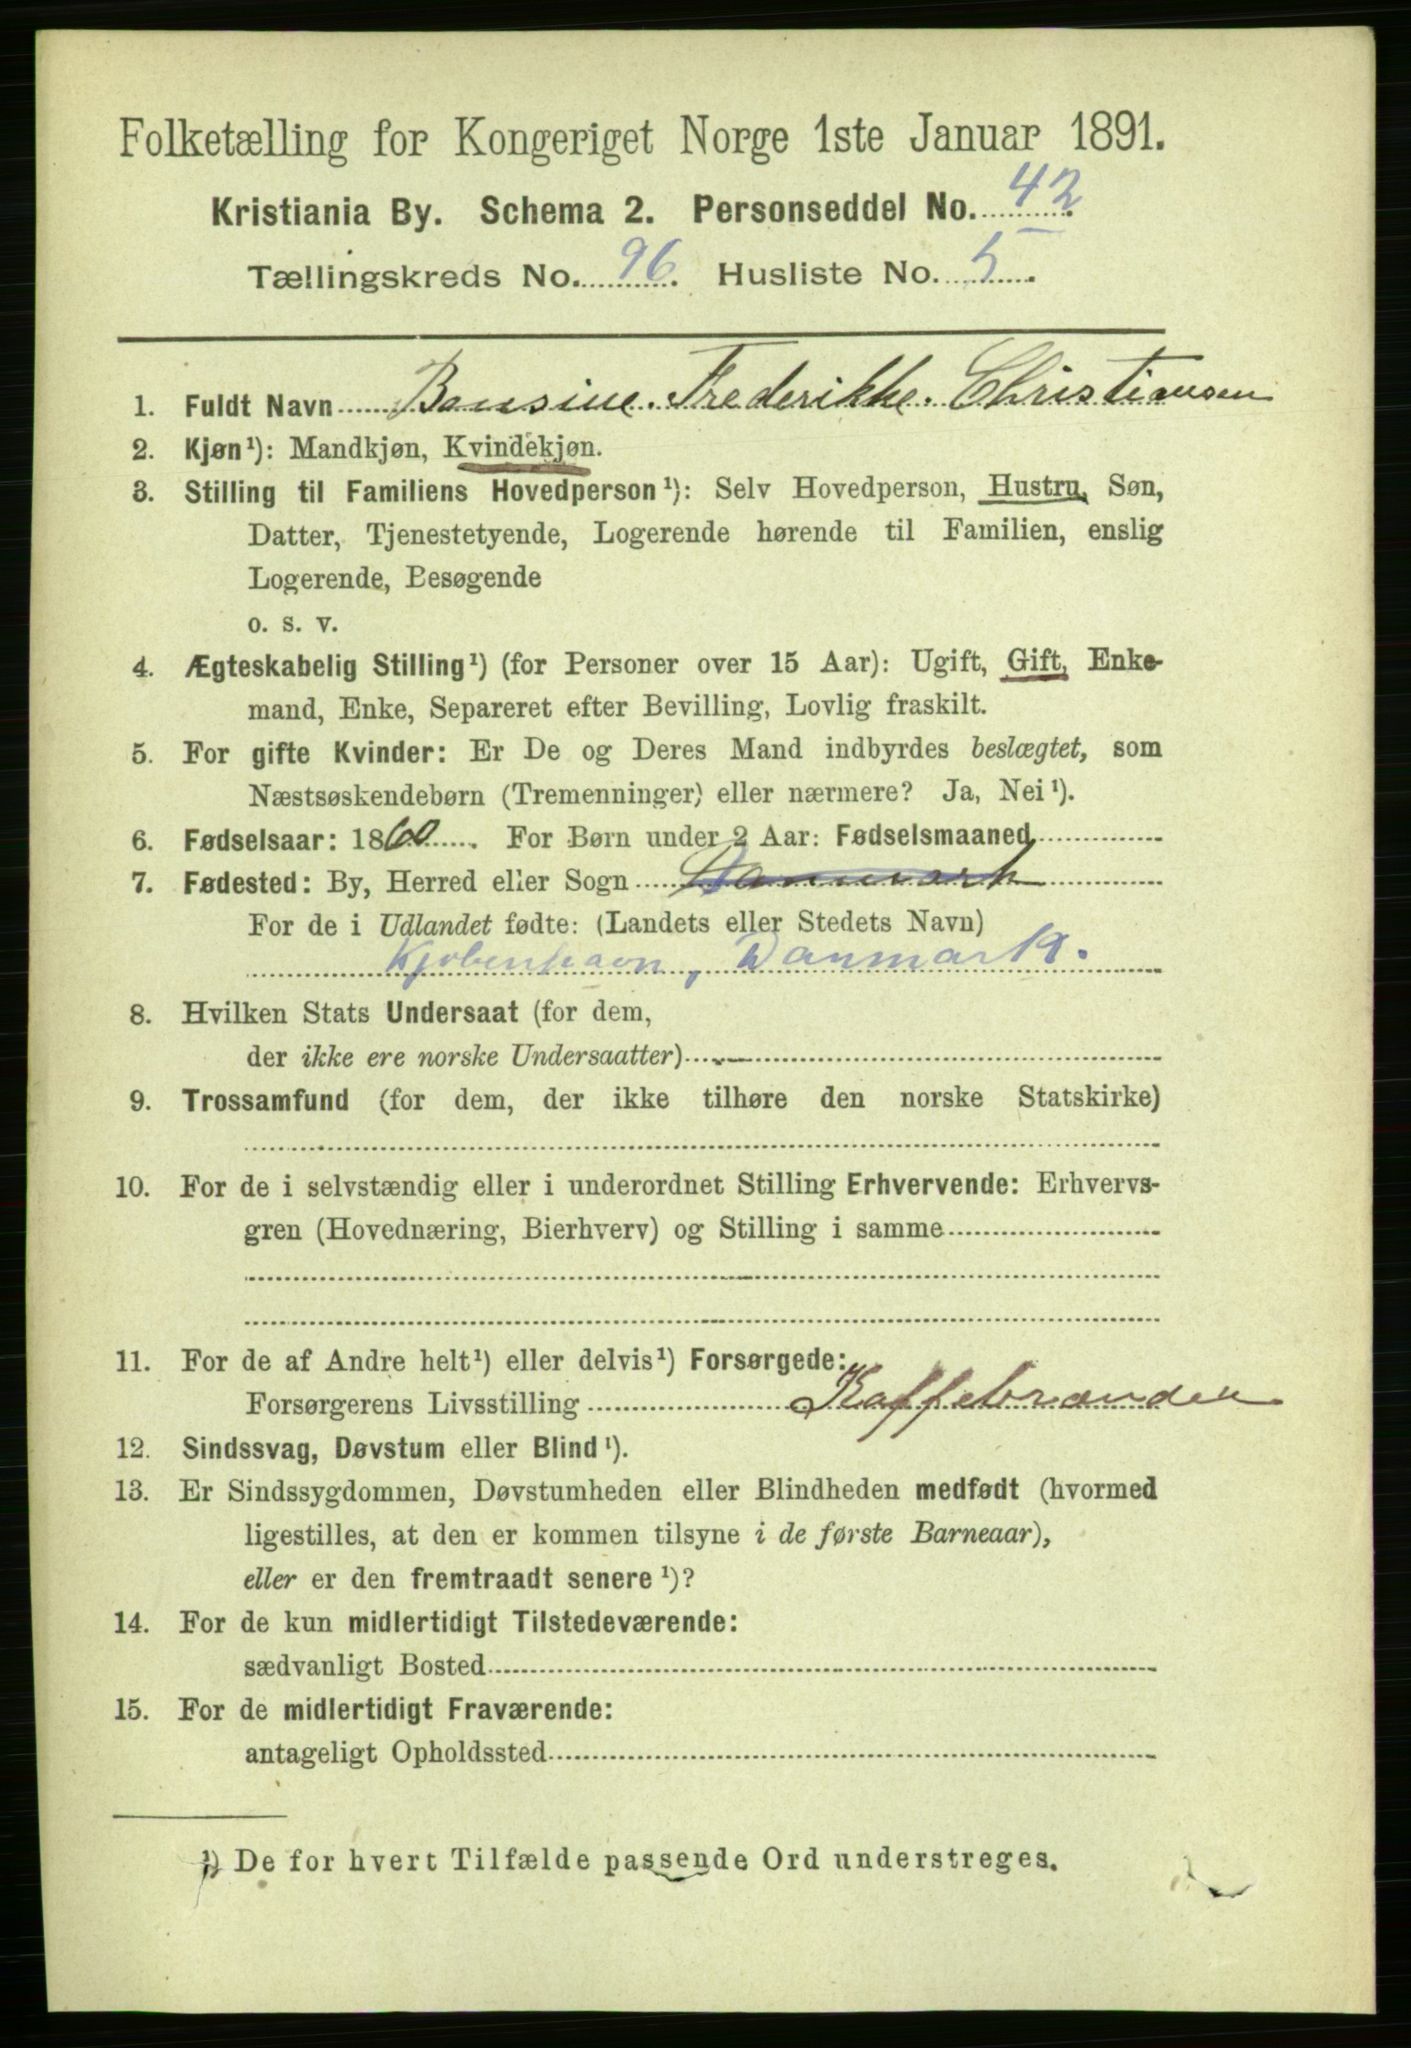 Folketælling for Kongeriget Norge 1ste Januar 1891.
Kristiania By. Schema 2. Personseddel No. 42
Tællingskreds No. 96. Husliste No. 5.
1. Fuldt Navn Bensine. Frederikke. Christiansen
2. Kjøn¹): Mandkjøn, Kvindekjøn.
3. Stilling til Familiens Hovedperson¹): Selv Hovedperson, Hustru, Søn,
Datter, Tjenestetyende, Logerende hørende til Familien, enslig
Logerende, Besøgende
o. s. v.
4. Ægteskabelig Stilling¹) (for Personer over 15 Aar): Ugift, Gift, Enke-
mand, Enke, Separeret efter Bevilling, Lovlig fraskilt.
5. For gifte Kvinder: Er De og Deres Mand indbyrdes beslægtet, som
Næstsøskendebørn (Tremenninger) eller nærmere? Ja, Nei¹).
6. Fødselsaar: 1860. For Børn under 2 Aar: Fødselsmaaned
7. Fødested: By, Herred eller Sogn Danmark
For de i Udlandet fødte: (Landets eller Stedets Navn)
Kjøbenhavn, Danmark.
8. Hvilken Stats Undersaat (for dem,
der ikke ere norske Undersaatter)
9. Trossamfund (for dem, der ikke tilhøre den norske Statskirke)
10. For de i selvstændig eller i underordnet Stilling Erhvervende: Erhvervs-
gren (Hovednæring, Bierhverv) og Stilling i samme
11. For de af Andre helt¹) eller delvis¹) Forsørgede:
Forsørgerens Livsstilling Kaffebrænder
12. Sindssvag, Døvstum eller Blind¹).
13. Er Sindssygdommen, Døvstumheden eller Blindheden medfødt (hvormed
ligestilles, at den er kommen tilsyne i de første Barneaar),
eller er den fremtraadt senere¹)?
14. For de kun midlertidigt Tilstedeværende:
sædvanligt Bosted
15. For de midlertidigt Fraværende:
antageligt Opholdssted
¹) De for hvert Tilfælde passende Ord understreges.